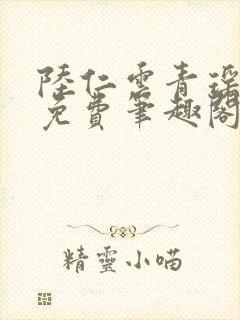 陸仁雲青瑶
免費筆趣閣
精靈小喵